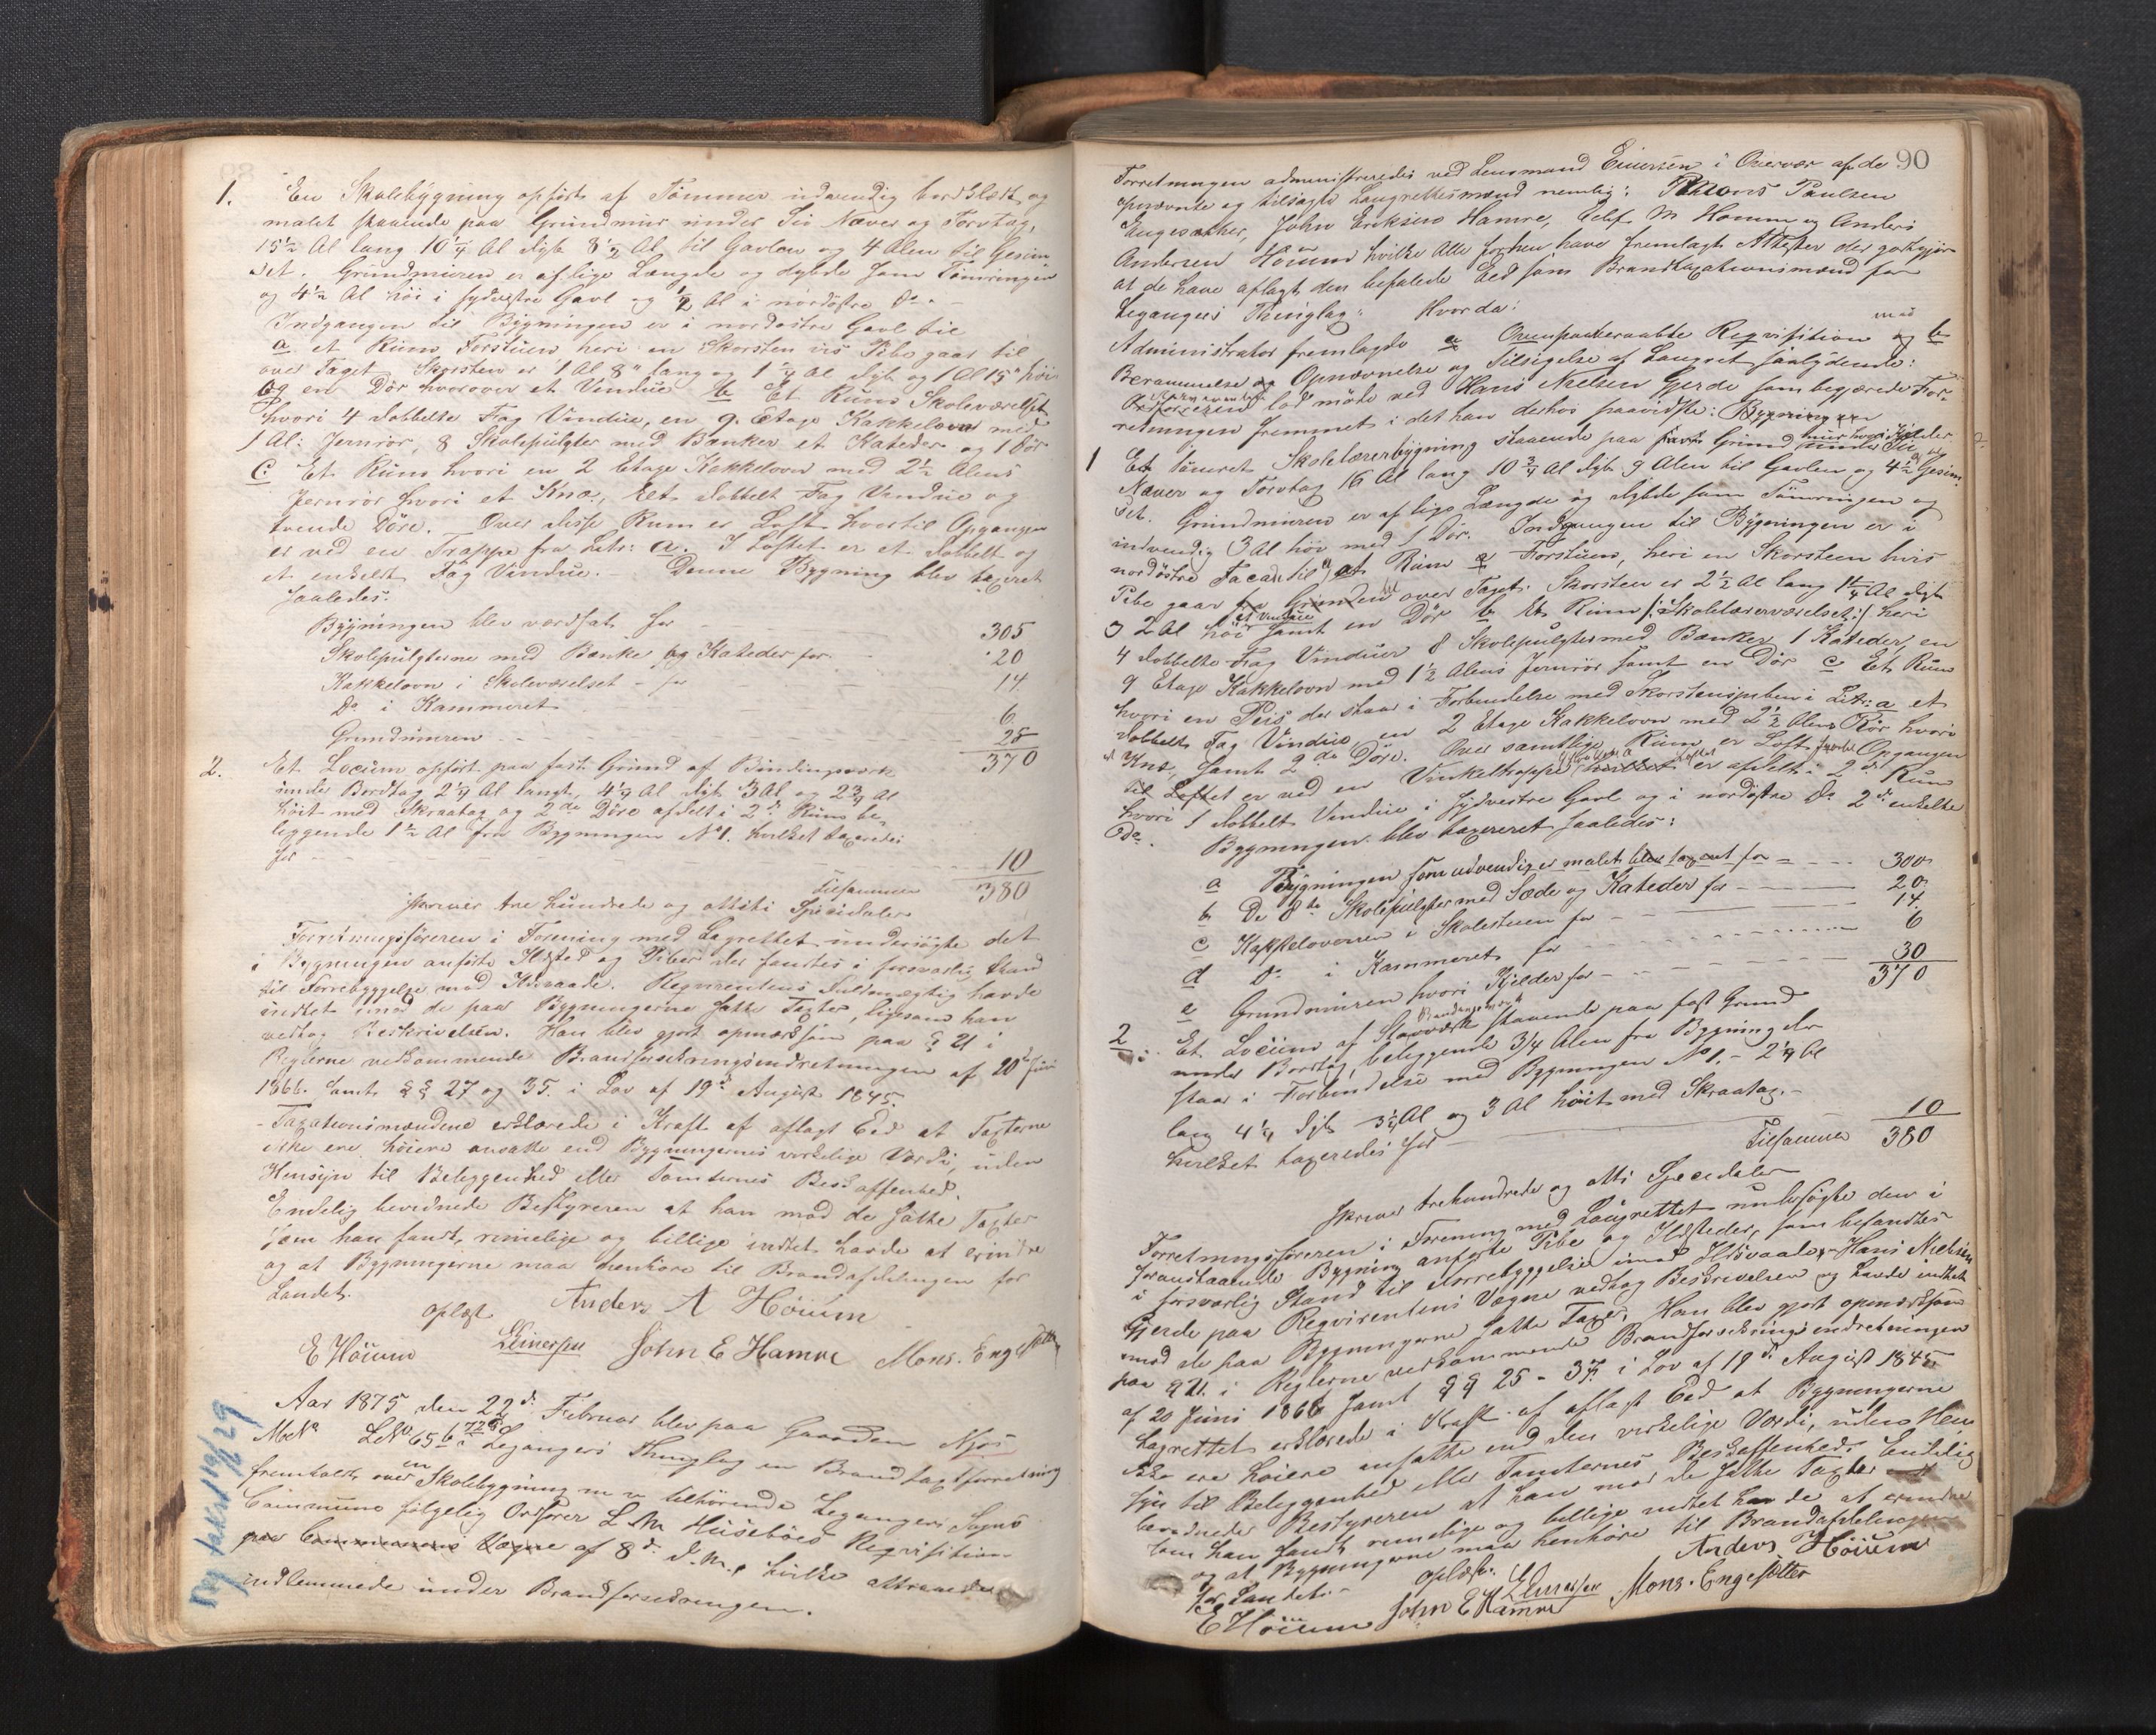 1. En Skolebygning opført af Tømmer udvendig bordklædt og
malet staaende paa Grundmur under Sio Næver og Torvtag,
15½ Al lang 10¼ Al dyb 8½ Al til Gavlen og 4 Alen til Gesim
set. Grundmuren er af lige Længde og dybde som Tømringen
og 4½ Al høi i sydvestre Gavl og ½ Al i nordøstre Do. -
Indgangen til Bygningen er i nordøstre Gavl til
a et Rum Forstuen heri en Skorsten vis Pibe gaar til
over Taget Skorsten er 1 Al 8" lang og 1 ¼ Al dyb og 1 Al 15" høi
og en Dør hvorover et Vindue b Et Rum Skoleværelset
hvori 4 dobbelte Fag Vindue, en 9. Etage Kakkelovn med
1 Al: Jernrør, 8 Skolepulgter med Bænker et Kateder og 1 Dør
C: Et Rum hvori en 2 Etage Kakkelovn med 2½ Alens
Jernrør hvori et Knæ, Eet dobbelt Fag Vindue og
tvende Døre. Over disse Rum er Loft hvortil Opgangen
er ved en Trappe fra Litr: a. I Loftet er et dobbelt og
et enkelt Fag Vindue. Denne Bygning blev taxeret
saaledes:
Bygningen blev værdsat for 305
Skolepulgterne med Bænke og Kateder for 20
Kakkelovn i Skoleværelset - for 14
Do i Kammeret 6
Grundmuren 25
370
2. Et Locum opført paa fast Grund af Bindingværk
under Bordtag 2¼ Al langt, 4¼ Al dyb 3 Al og 2¾ Al
høit med Skraatag og 2de Døre afdelt i 2de Rum be-
liggende 1½ Al fra Bygningen No 1. hvilket taxeredes
for 10
Tilsammen 380
skriver tre hundrede og ottiti Speciedaler
Forretningsføreren i Forening med Lagrettet undersøgte det
i Bygningen anførte Ildsted og Piber der fandtes i forsvarlig Stand
til Forrebyggelse mod Ildsvaade. Requirentens Fuldmægtig havde
indtet imod de paa Bygningerne satte Taxter, ligesom han
vedtog Beskrivelsen. Han blev gjort opmærksom paa § 21 i
Reglerne vedkommende Brandforsikringsindretningen af 20de Juni
1866. samt §§ 27 og 35. i Lov af 19de August 1845.
- Taxationsmændene erklærede i Kraft af aflagt Eed at Taxterne
ikke ere høiere ansatte end Bygningernes virkelige Værdi, uden
Hensyn til Beleggenhed eller Tomternes Beskaffenhed.
Endelig bevidnede Bestyreren at han mod de satte Taxter
som han fandt, rimelige og billige indtet havde at erindre
og at Bygningerne maa henhøre til Brandafdelingen for
Landet.
Oplæst Anders A Høium
E Høium LEinersen John E Hamre Mons. Engesetter
Aar 1875 den 22de Februar blev paa Gaarden Njøs
MNo LNo 65 b 72 i Leganger's Thinglag en Brandtaxtforretning
fremholdt over en Skolebygning m v tilhørende Leganger's Sogns
Commune følgelig Ordfører L M Husebøes Reqvisition
paa Communens Vegne af 8de d. M., hvilke attraaedes
indlemmede under Brandforsikringen.
Ny takst 19/11 29
90
Forretningen administreredes ved Lensmand Einersen i Overvær af de
opnævnte og tilsagte Laugrettesmænd nemlig: Mons Paulsen
Engesætter, John Eriksen Hamre, Elef M Høium og Anders
Andersen Høium hvilke alle forhen have fremlagt Attester der godtgjør
at de have aflagt den befalede Eed som Brandtaxationsmænd for
Legangers Thinglag: Hvorda:
Administrator fremlagde a Ovenpaaberaabte Reqvisition med og b
Berammelse og Opnævnelse og Tilsigelse af Lauget saalydende:
Reqvirenten lod møde ved Hans Nielsen Gjerde som begjærede For-
retningen fremmet i det han derhos paaviste: Bygningen
1 Et tømret Skolelærerbygning staaende paa fast Grund mur hvori Kjelder under Sio
Næver og Torvtag 16 Al lang 10¾ Al dyb 9 Alen til Gavlen og 4½ Al til Gesim
set. Grundmuren er af lige Længde og dybde som Tømringen og
indvendig 3 Al høi med 1 Dør. Indgangen til Bygningen er i
nordøstre Facade til a) et Rum Forstuen, heri en Skorsteen hvis
Pibe gaar fra Grunden til over Taget. Skorsten er 2½ Al lang 1¼ Al dyb
2 Al høi et Vindue samt en Dør b Et Rum /: Skolelærerværelset:/ heri
4 dobbelte Fag Vinduer 8 Skolepulgter med Bænker 1 Kateder, en
9 Etage Kakkelovn med 1½ Alens Jernrør samt en Dør c Et Rum
hvori en Peis der staar i Forbindelse med Skorstenspiben i Litr: a et
dobbelt Fag Vindue, en 2 Etage Kakkelovn med 2½ Alens Rør hvori
et Knæ, samt 2de Døre. Over samtlige Rum er Loft hvortil Opgangen
til Loftet er ved en Vinkeltrappe Loftet er afdelt i 2de Rum
hvori 1 dobbelt Vindue i sydvestre Gavl og i nordøstre Do 2de enkelte
Do. Bygningen blev taxereret saaledes:
a Bygningen som udvendig er malet blev taxeret for 300
b De 8te Skolepulgter med Sæde og Kateder for 20
c Kakkelovnen i Skolestuen for 14
d Do i Kammeret for 6
e Grundmuren hvori Kjelder for 30
370
2 Et Locum af Stavværk Bindingsværk staaende paa fast Grund
under Bordtag, beleggende 3/4 Alen fra Bygning der
staar i Forbindelse med Bygningen No 1. - 2¼ Al
lang 4¼ dyb 3½ Al og 3 Al høit med Skraatag. -
hvilket taxeredes for 10
Tilsammen 380
skriver trehundrede og otti Speciedaler
Forretningsføreren i Forening med Laugrettet undersøgte den i
foranstaaende Bygning anførte Pibe og Ildsteder, som befandtes
i forsvarlig Stand til Forrebyggelse imod Ildsvaade. - Hans Nielsen
Gjerde paa Reqvirentens Vegne vedtog Beskrivelsen og havde indtet
mod de paa Bygningerne satte Taxter. Han blev gjort opmærksom
paa § 21. i Reglerne vedkommende Brandforsikringsindretningen
af 20 Juni 1866 samt §§ 25 - 37. i Lov af 19de August 1845
Lagrettet erklærede i Kraft af aflagt Eed at Bygningerne
ikke ere høiere ansatte end den virkelige Værdi, uden Hen
syn til Beleggenhed eller Tomternes Beskaffenhed. Endelig
bevidnede Bestyreren at han mod de satte Taxter
som han fandt rimelige og billige indtet havde at erindre
og at Bygningerne maa henhøre til Brandafdelingen
for Landet. - Oplæst. Anders Høium
E Høium John E Hamre LEinersen Mons. Engesetter